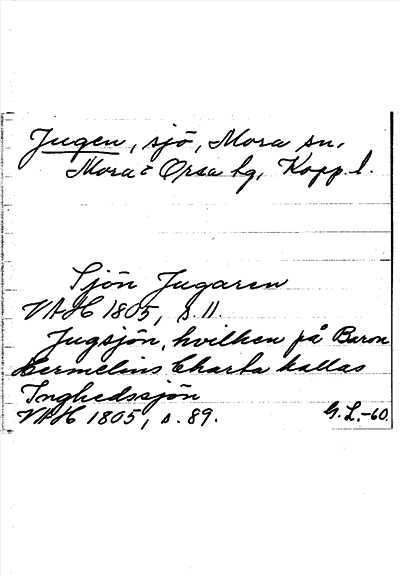 Jugen, sjö, Mora sn,
Mora o Orsa hg, Kopp. l.
Sjön Jugaren
VAH 1805, s. 11.
Jugsjön, hvilken på Baron
Hermelins Charta kallas
Inghedssjön
VAH 1805, s. 89.
G. L. -60.